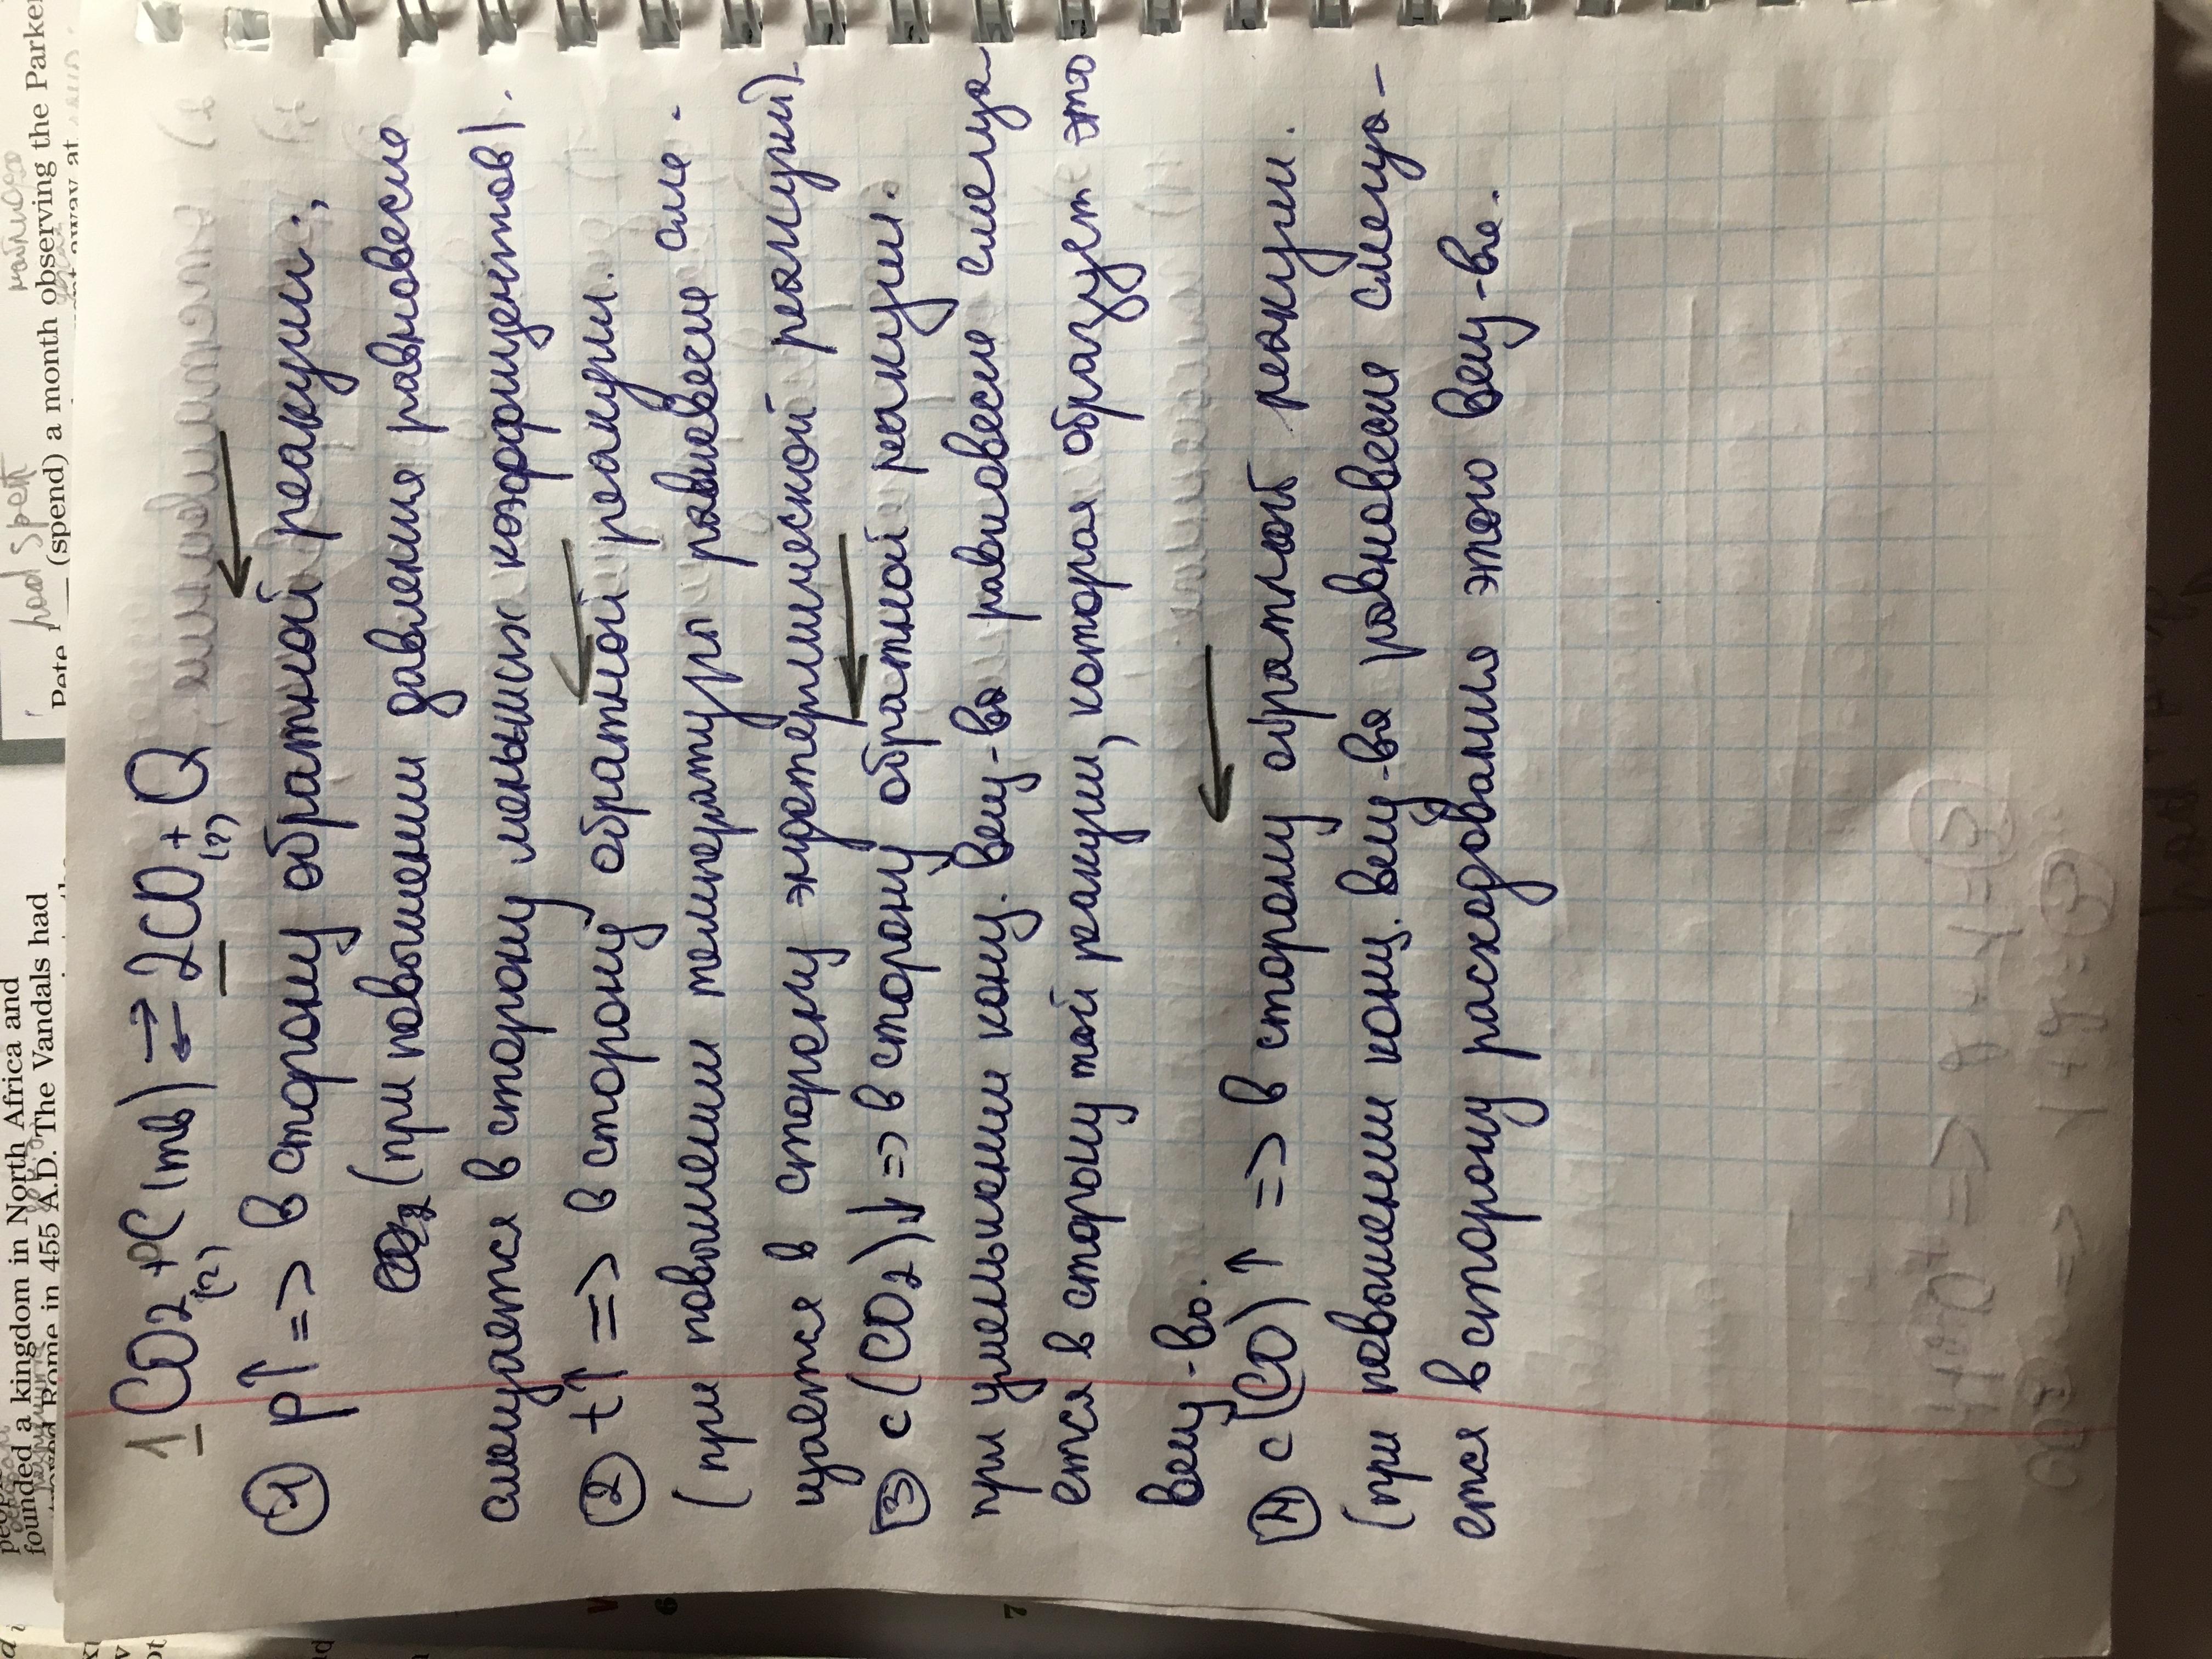 had spent
Pete ___ (spend) a month observing the Parker
founded a kingdom in North Africa and
in 455 A.D. The Vandals had
1 CO2 (г) + C (тв) ⇄ 2CO (г) + Q
① p↑ => в сторону обратной реакции.,
(при повышении давления равновесие
смещается в сторону меньших коэффициентов).
② t↑ => в сторону обратной реакции.
(при повышении температуры равновесие сме-
щается в сторону эндотермической реакции).
③ c(CO2)↓ => в сторону обратной реакции.
при уменьшении конц. вещ-ва равновесие смеща
ется в сторону той реакции, которая образует это
вещ-во.
④ c(CO)↑ => в сторону обратной реакции.
(при повышении конц. вещ-ва равновесие смеща-
ется в сторону расходования этого вещ-ва.
6
7